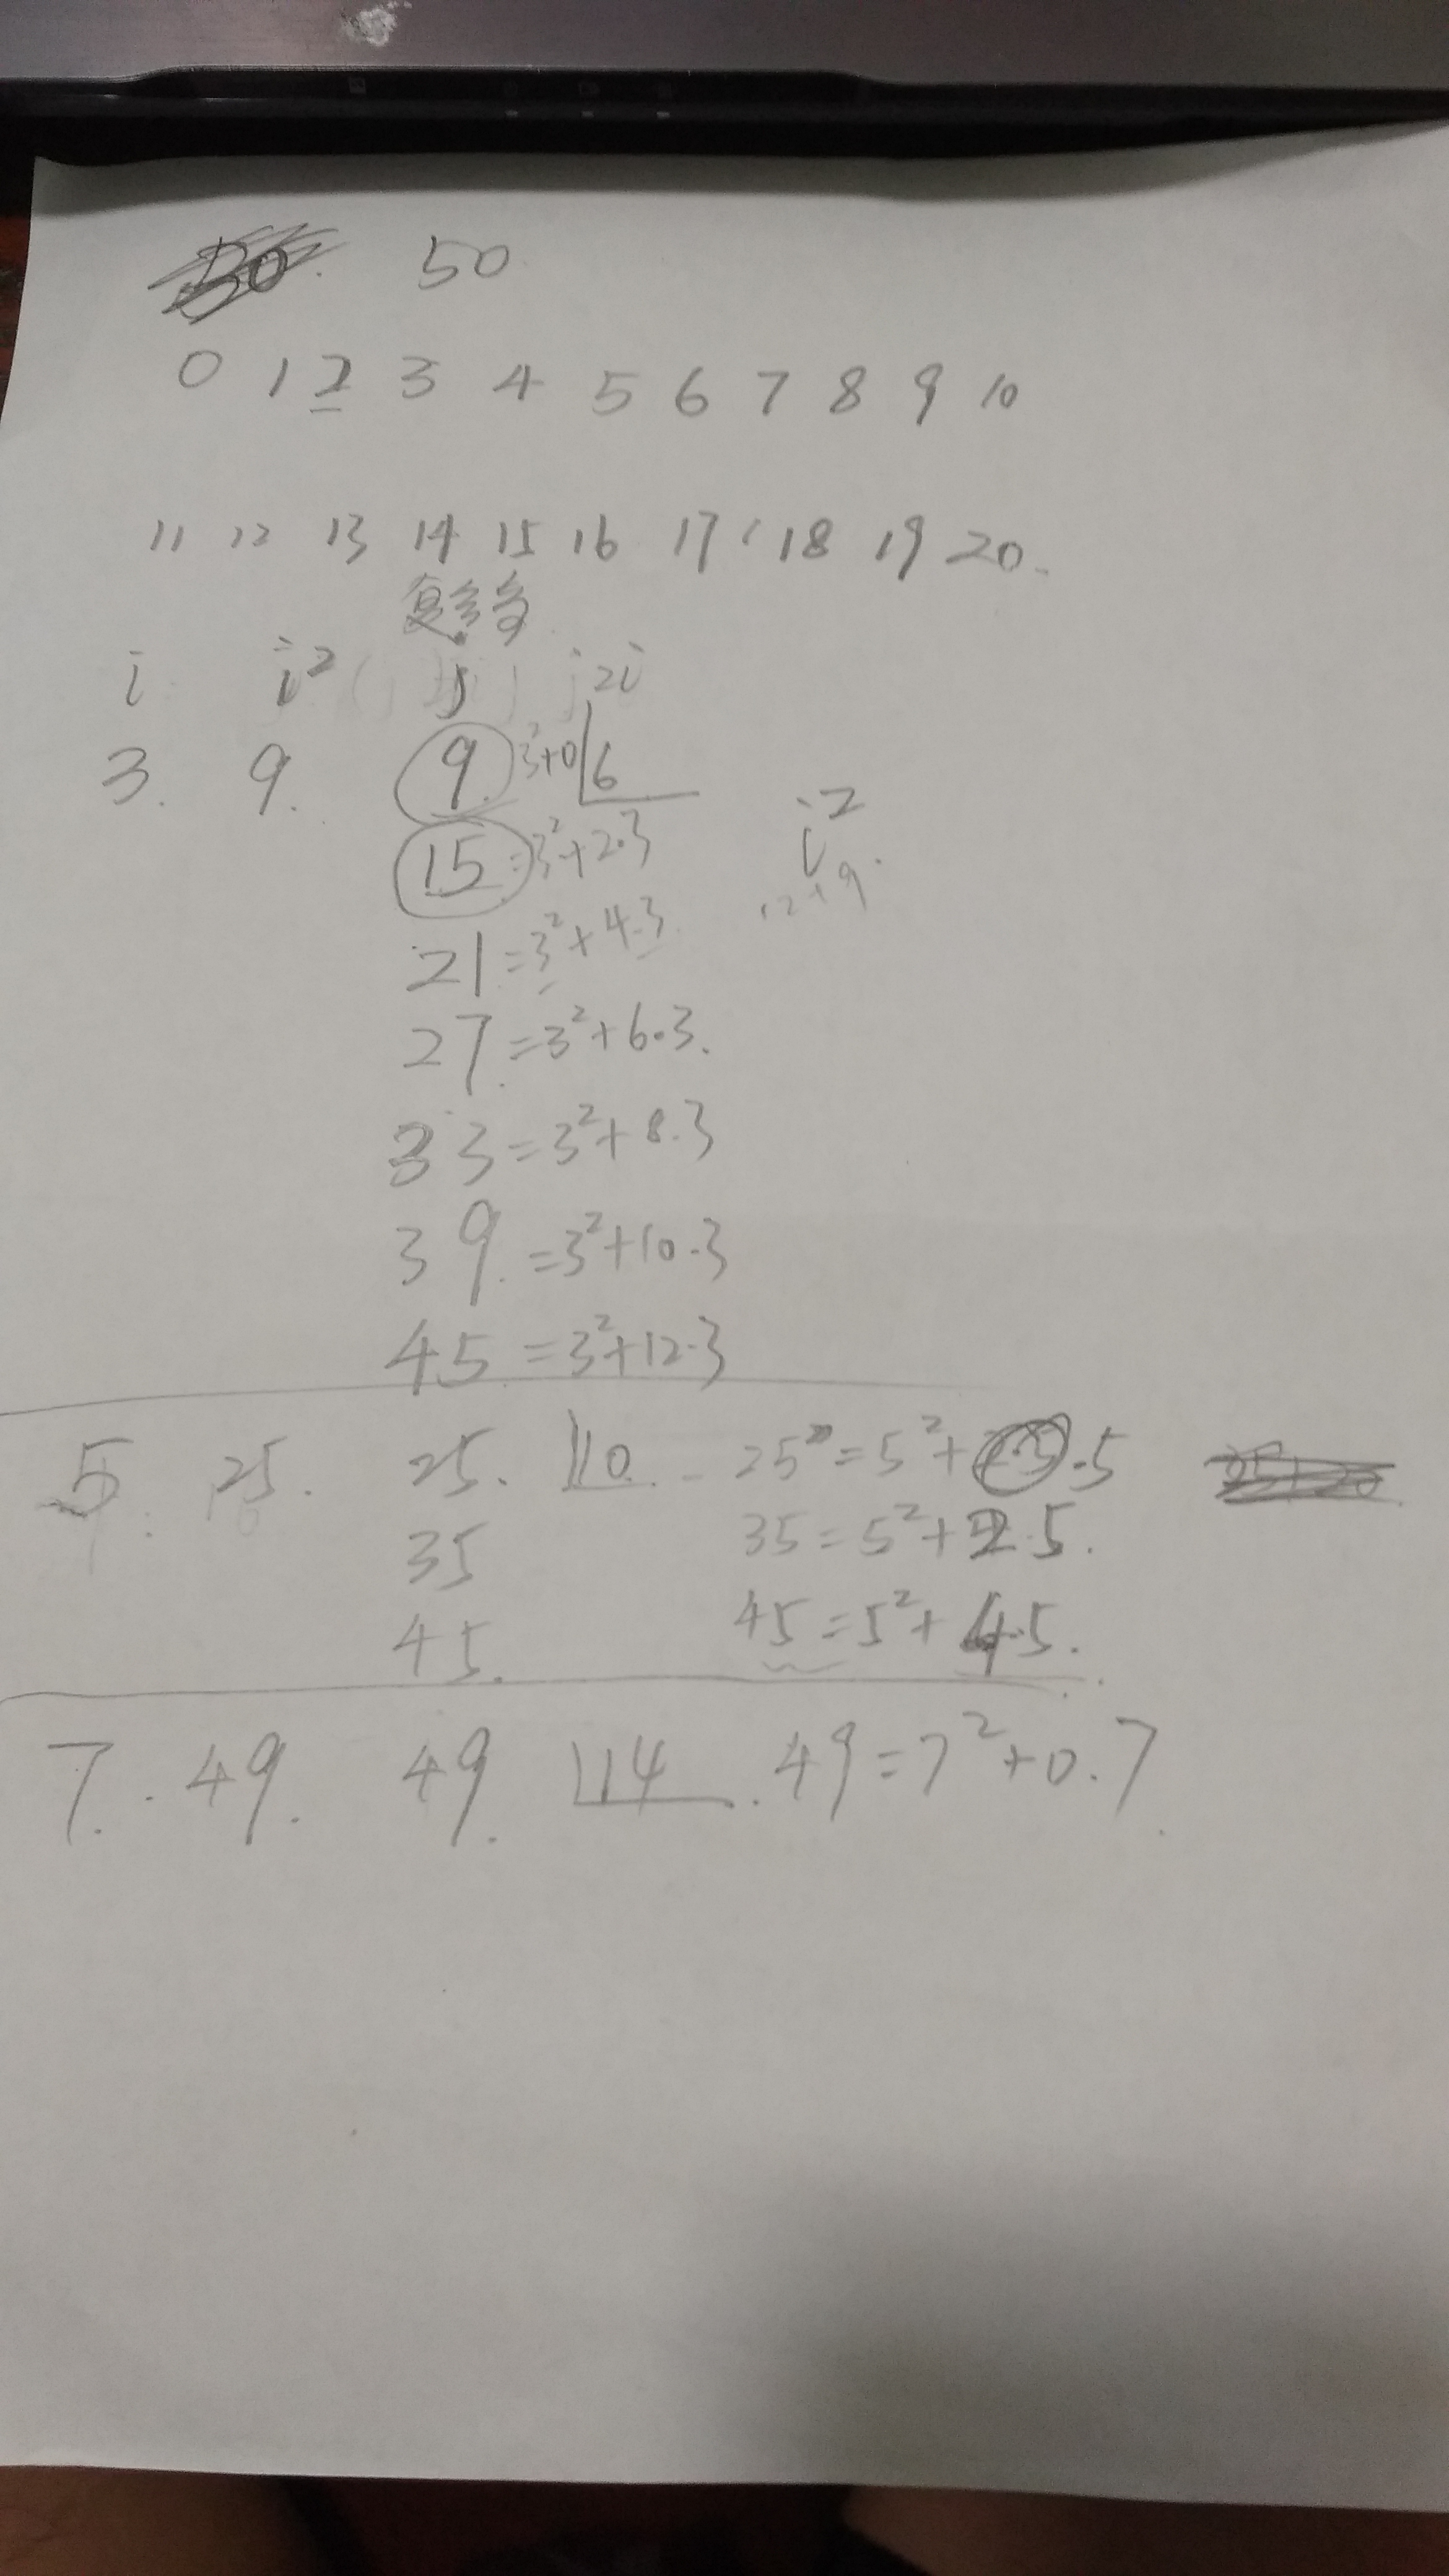 50
0 1 2 3 4 5 6 7 8 9 10
11 12 13 14 15 16 17 18 19 20.
i i² j 2i
3. 9. 9. 3²+0 6
15 = 3²+2·3
i²
12+9.
21 = 3²+4·3
27. = 3²+6·3.
33 = 3²+8·3
39. = 3²+10·3
45 = 3²+12·3
5. 25. 25. 10 25 = 5²+ ·5
35 35 = 5²+2·5.
45. 45 = 5²+4·5.
7. 49. 49. 14. 49 = 7²+0·7.